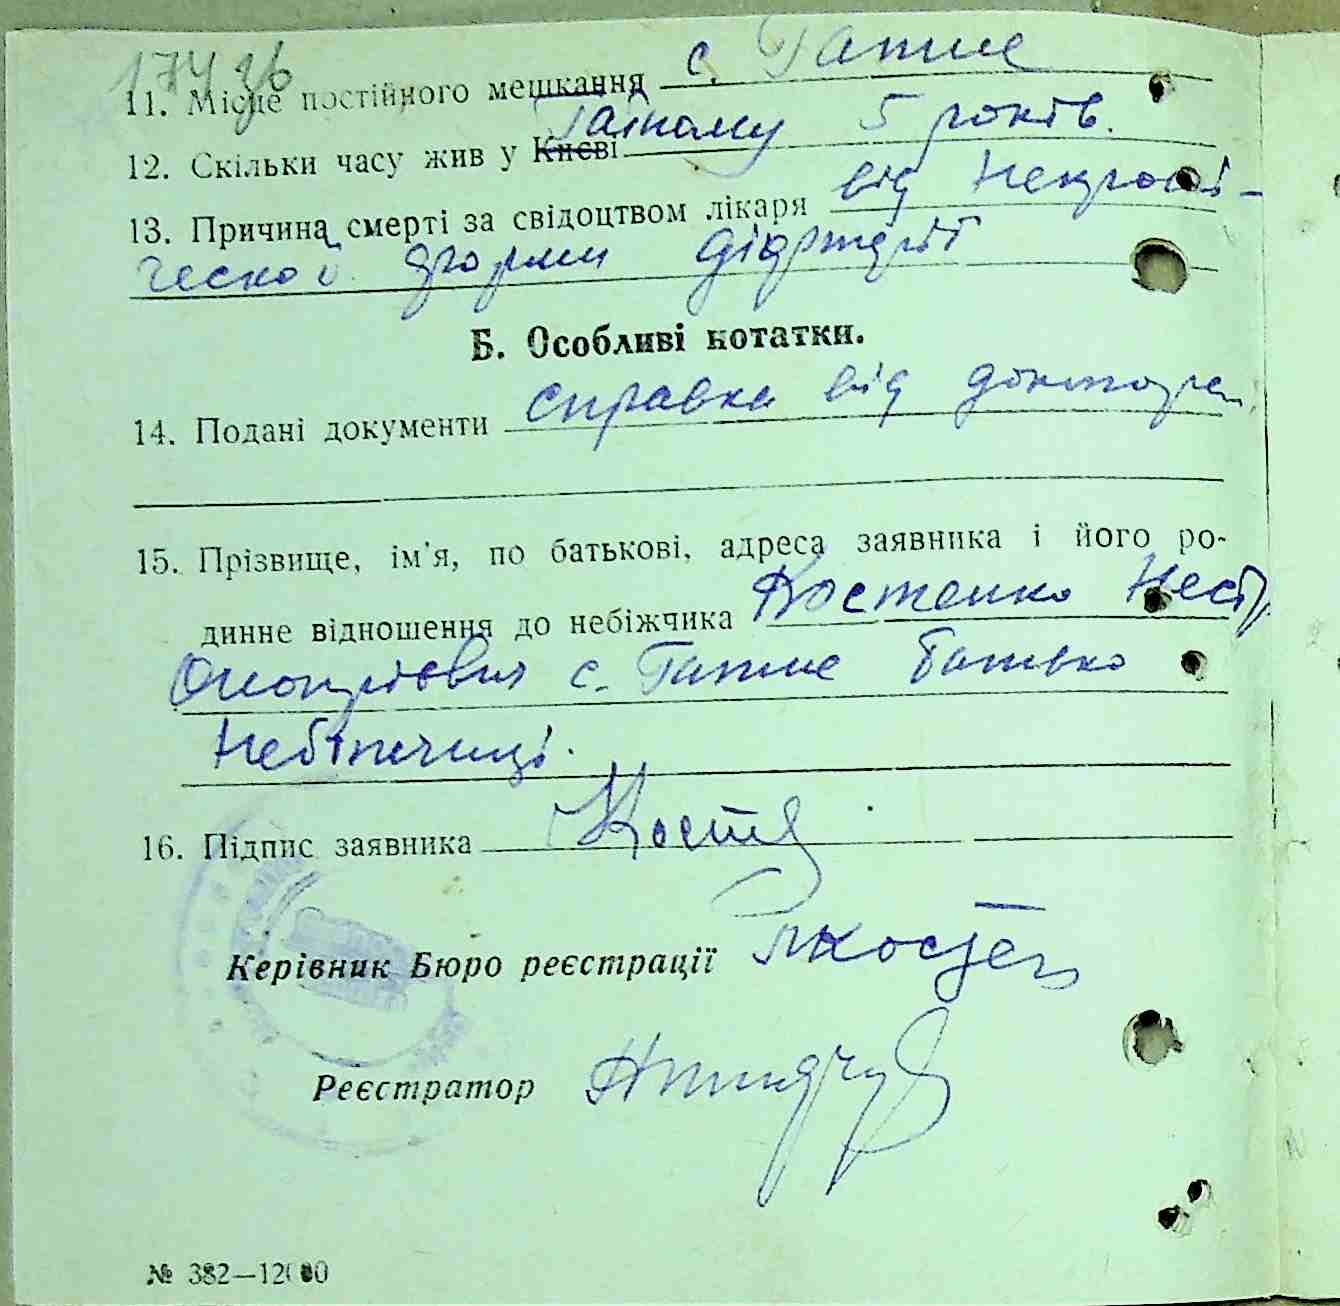 174 зв
11. Місце постійного мешкання с. Гатне
12. Скільки часу жив у Києві Гатному 5 років.
13. Причина смерті за свідоцтвом лікаря від некроті-
ческой форми діфтерії
Б. Особливі нотатки.
14. Подані документи справка від доктора
15. Прізвище, ім'я, по батькові, адреса заявника і його ро-
динне відношення до небіжчика Костенко Нест
Онопрієвич с. Гатне батько
небіжчиці.
16. Підпис заявника Костен
Керівник Бюро реєстрації
Реєстратор
№ 382—12000